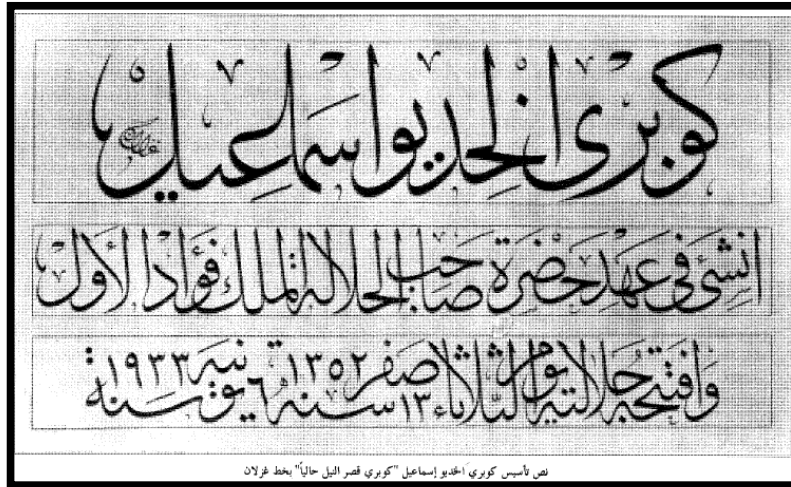 كوبرى الخديو اسماعيل
انشئ فى عهد حضرة صاحب الجلالة الملك فؤاد الأول
وافتتحه جلالته يوم الثلاثاء ١٣ صفر سنة ١٣٥٢ ٦ يونيه سنة ١٩٣٣
نص تأسيس كوبري الخديو إسماعيل "كوبري قصر النيل حالياً" بخط غزلان